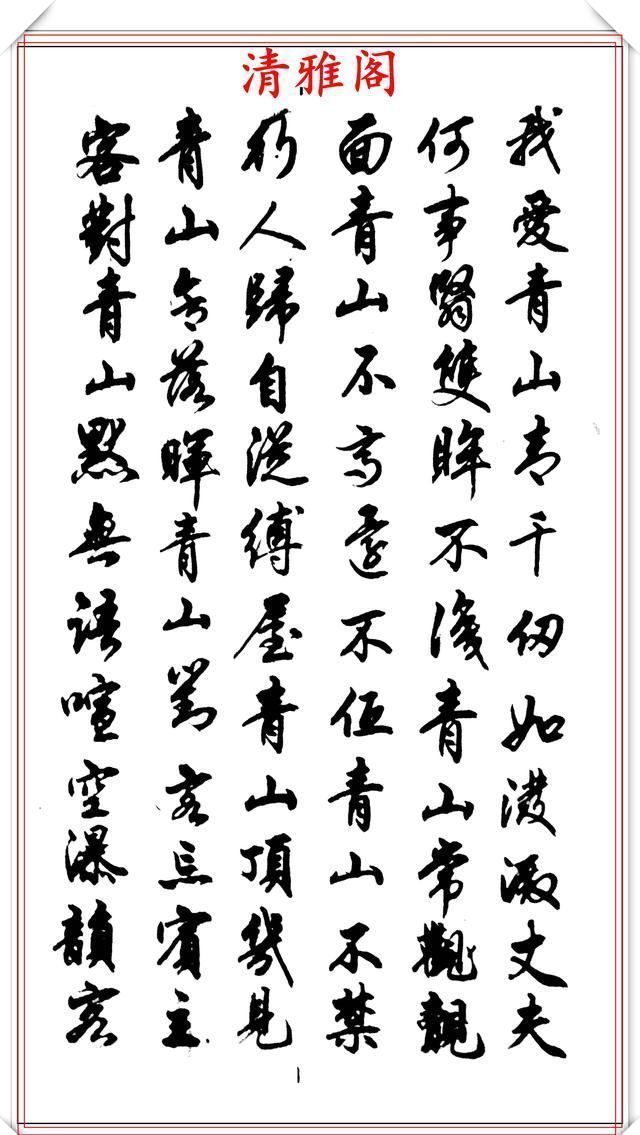 清雅阁
我愛青山青千仞如丈夫
何事翳雙眸不淺青山常
面青山不高還不低青山不禁
行人歸自從縛屋青山頂幾見
青山含落暉青山對客忘賓主
客對青山默無語喧空瀑韻客